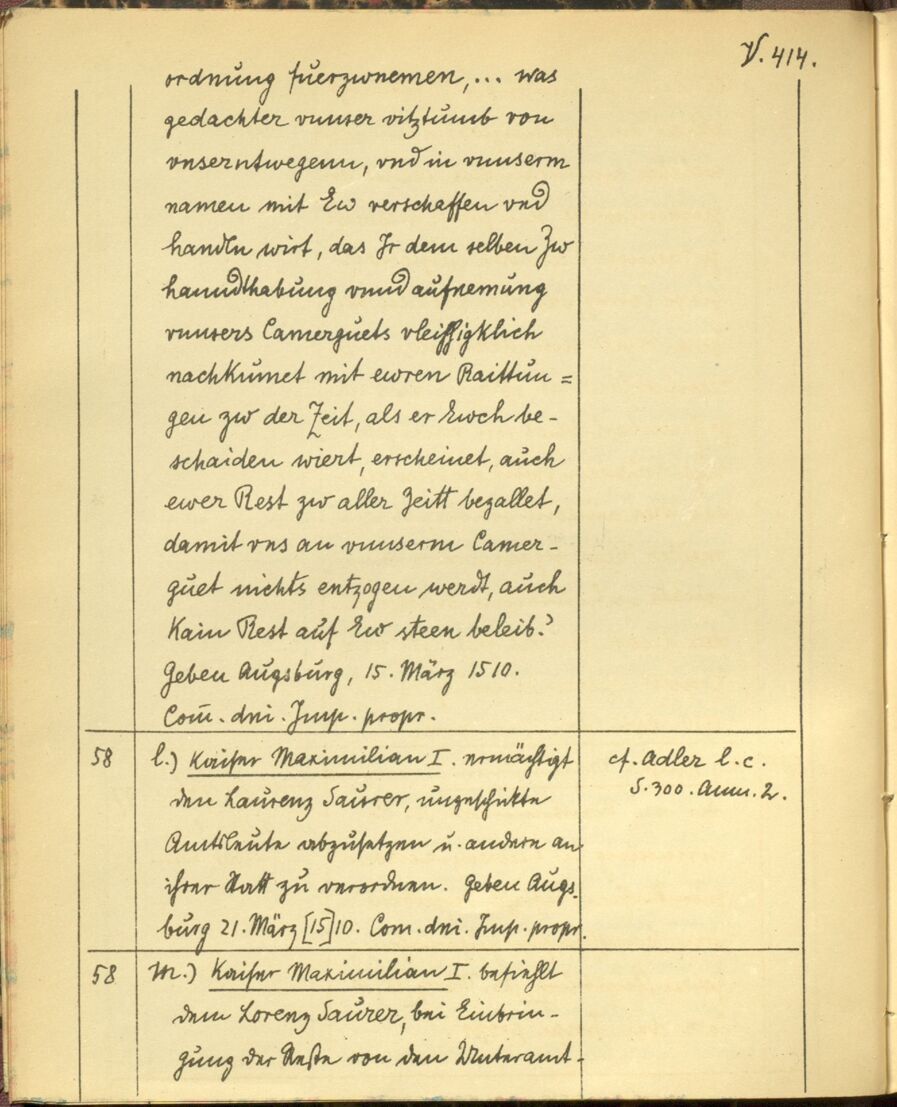 V. 414.
ordnung fuerzwnemen, ... was
gedachter vnnser vitztumb von
vnserntwegenn, vnd in vnnserm
namen mit Ew verschaffen vnd
handln wirt, das Ir dem selben Zw
hanndthabung vnnd aufnemung
vnnsers Camerguets vleissigklich
nachkumet mit ewren Raittun =
gen zw der Zeit, als er Ewch be-
schaiden wiert, erscheinet, auch
ewer Rest zw aller Zeitt bezallet,
damit vns an vnnserm Camer-
guet nichts entzogen werdt, auch
Kain Rest auf Ew steen beleib.
Geben Augsburg, 15. März 1510.
Com̄. dni. Imp. propr.
58 l.) Kaiser Maximilian I. ermächtigt cf. Adler l. c.
den Laurenz Saurer, ungeschikte S. 300. Anm. 2.
Amtsleute abzusetzen u. andere an
ihrer statt zu verordnen. Geben Augs-
burg 21. März [15]10. Com. dni. Imp. propr.
58 m.) Kaiser Maximilian I. befiehlt
dem Lorenz Saurer, bei Einbrin-
gung der Reste von den Unteramt-